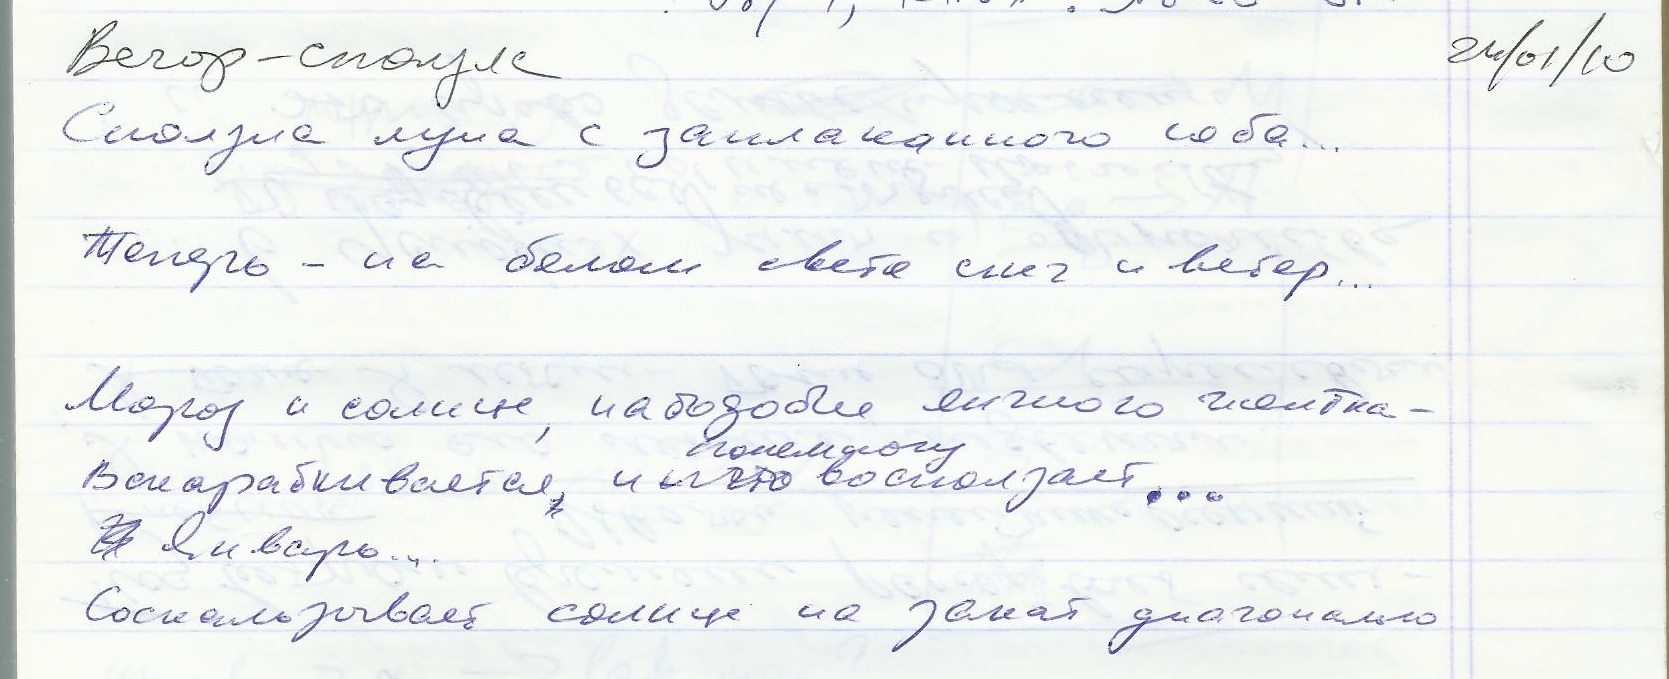 Вечор-сползл 24/01/10
Сползла луна с заплаканного неба...
Теперь - на белом свете снег и ветер...
Мороз и солнце, наподобие яичного желтка -
понемногу
Вскарабкивается, и восползает...
Январь...
Соскальзывает солнце на закат диагонально